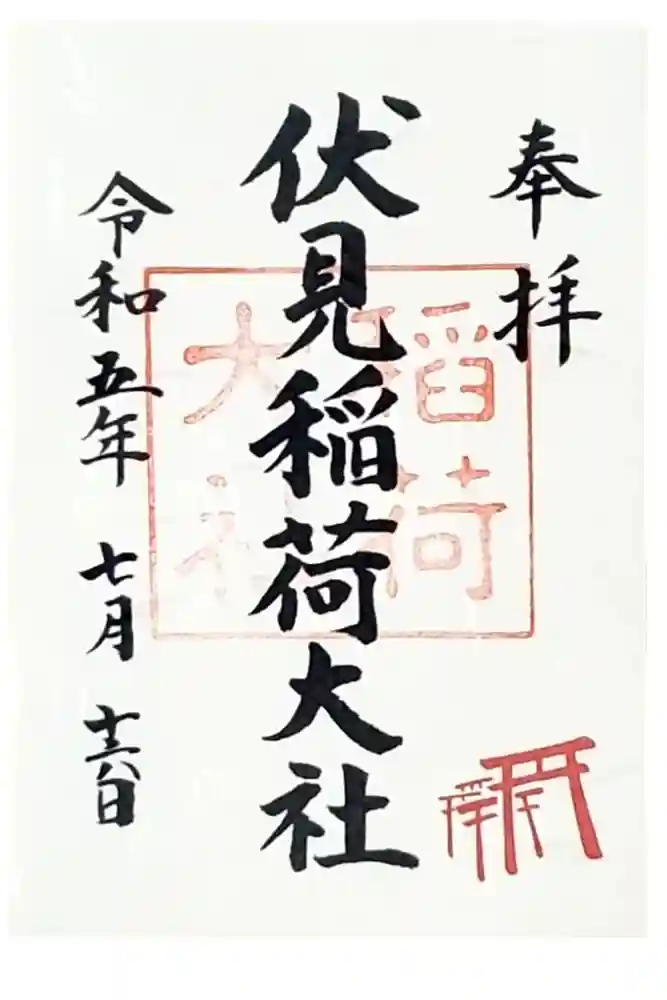 奉拝
伏見稲荷大社
令和五年 七月 十六日
稲荷
大社